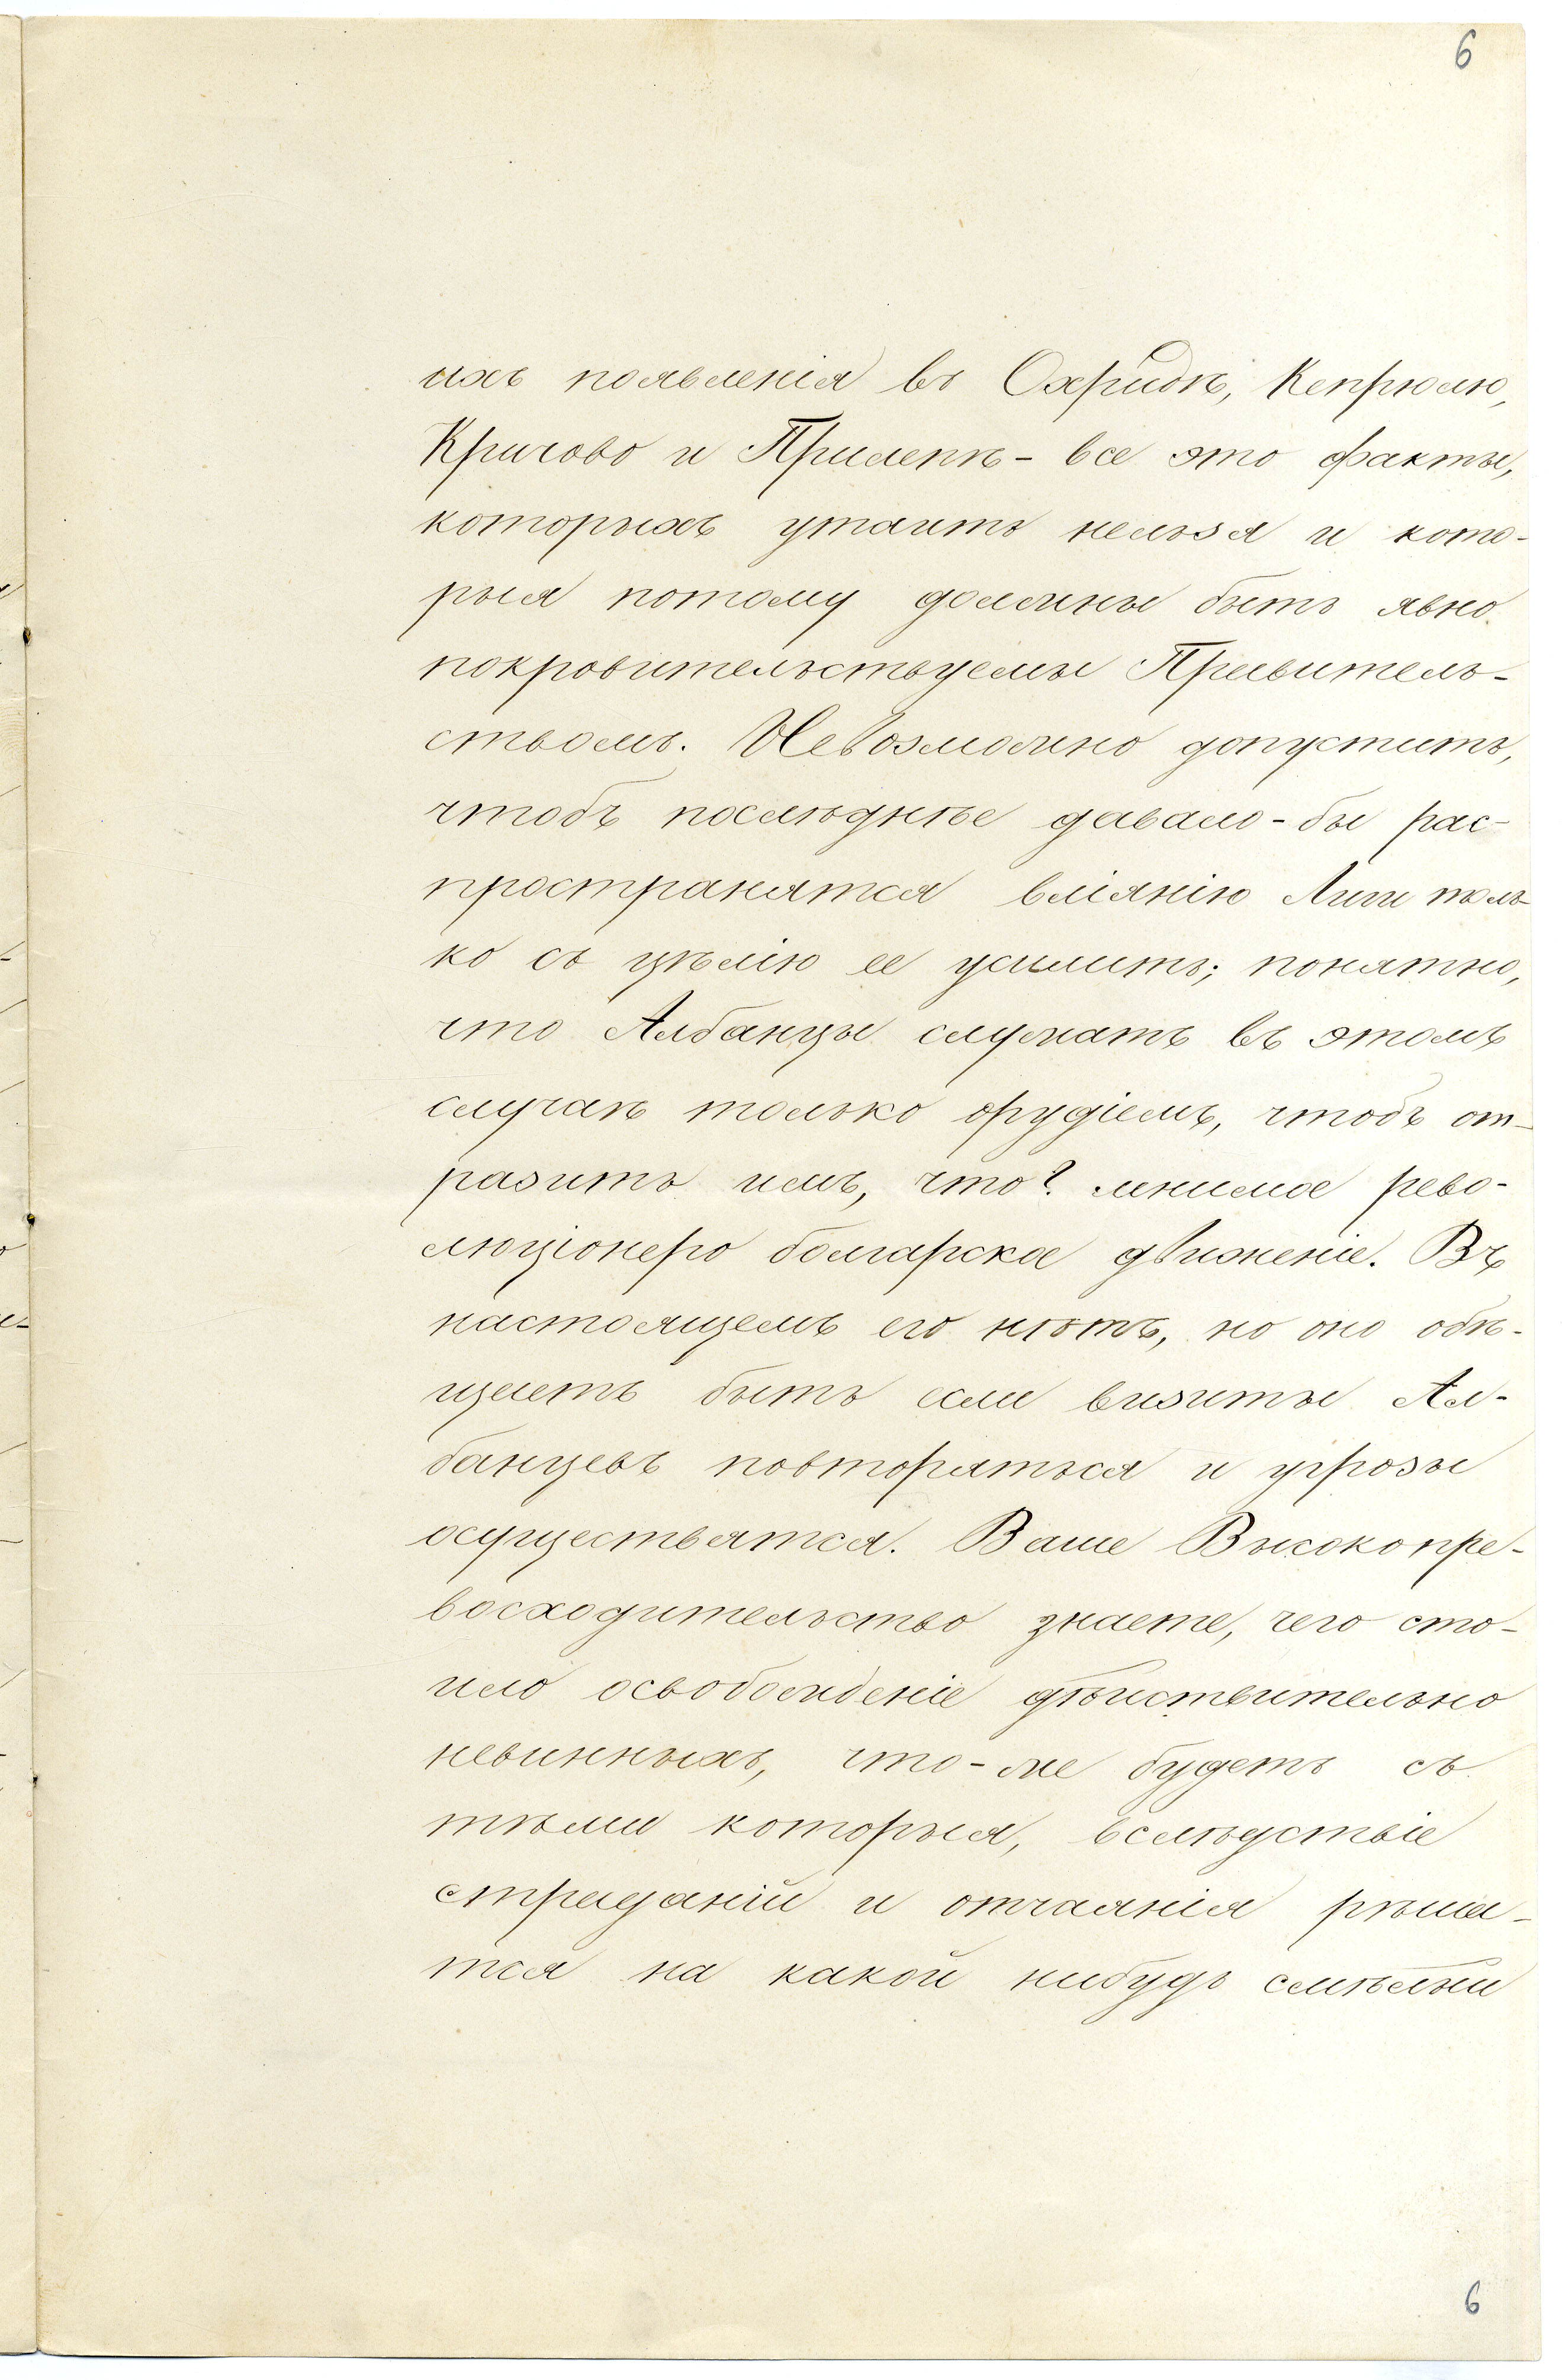 6
ихъ появленія въ Охридѣ, Кепрюлю,
Кричово и Прилепѣ - все это факты,
которыхъ утаить нельзя и кото-
рыя потому должны быть явно
покровительствуемы Правитель-
ствомъ. Невозможно допустить,
чтобъ послѣднѣе давало-бы рас-
пространятся вліянію Лиги толь-
ко съ цѣлію ее усилить; понятно,
что Албанцы служатъ въ этомъ
случаѣ только орудіемъ, чтобъ от-
разить имъ, что? мнимое рево-
люціонеро болгарское движеніе. Въ
настоящемъ его нѣтъ, но оно обѣ-
щаетъ быть если визиты Ал-
банцевъ повторяться и угрозы
осуществятся. Ваше Высокопре-
восходительство знаете, чего сто-
ило освобожденіе дѣйствительно
невинныхъ, что-же будетъ съ
тѣми которыя, вслѣдствіе
страданій и отчаянія рѣша-
тся на какой нибудь смѣлый
6